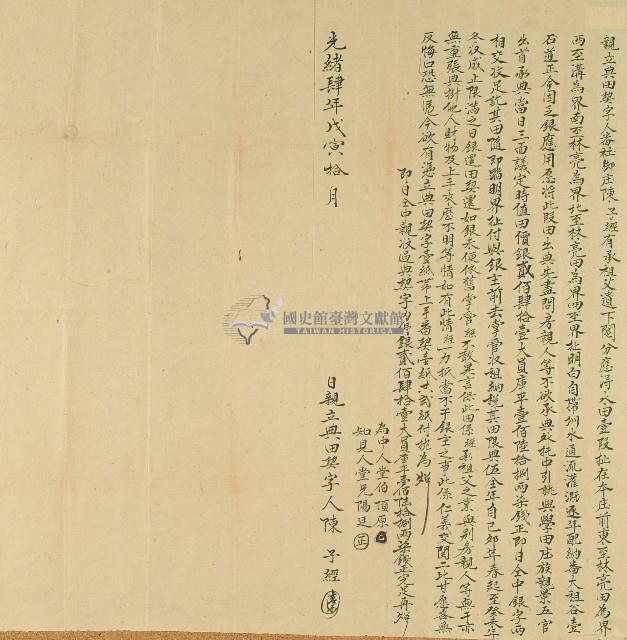 親立典田契字人番社腳庄陳子經有承祖父遺下鬮分應得水田壹段址在本庄前東至林亮田為界
西至溝為界南至林亮為界北至林亮田為界四至界址明白自帶圳水通流灌溉逐年配納番大祖谷壹
石道正今因乏銀應用愿將此段田出典先盡問房親人等不欲承典外托中引就與學田庄族親景五官
出首承典當日三面議定時值田價銀貳佰肆拾壹大員庫平壹佰陸拾捌兩柒錢正即日仝中銀字兩
相交收足訖其田隨即踏明界址付與銀主前去掌管收租納稅其田限典伍全年自己卯年春起至癸未年
冬收成止限滿之日銀還田契還如銀未便依舊掌管經不敢異言保此田係經承祖父之業與別房親人等無干亦
無重張典掛他人財物及上手來歷不明等情如有此情經一力抵當不干銀主之事此係仁義交關二比甘愿各無
反悔口恐無憑今欲有憑立典田契字壹紙帶上手番契壹紙共貳紙付執為炤
即日仝中親收過典契字內佛銀貳佰肆拾壹大員庫平壹佰陸拾捌兩柒錢正完足再炤
為中人堂伯頂原
知見人堂兄陽廷
光緒肆年戊寅拾月 日親立典田契字人陳子經
國史館臺灣文獻館
TAIWAN HISTORICA